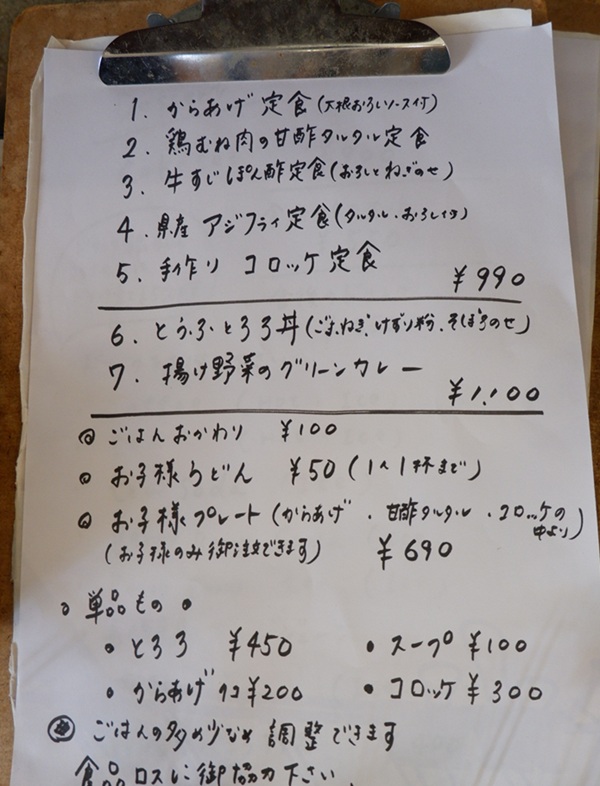 1. からあげ定食(大根おろしソース付)
2. 鶏むね肉の甘酢タルタル定食
3. 牛すじぽん酢定食(おろしとねぎのせ)
4. 県産アジフライ定食(タルタル・おろし付)
5. 手作りコロッケ定食
¥990
6. とうふとろろ丼(ごま、ねぎ、けずり粉、そぼろのせ)
7. 揚げ野菜のグリーンカレー
¥1,100
◎ ごはんおかわり ¥100
◎ お子様うどん ¥50(1人1杯まで)
◎ お子様プレート(からあげ・甘酢タルタル・コロッケの中より)
(お子様のみ御注文できます) ¥690
○ 単品もの ●
• とろろ ¥450 • スープ ¥100
• からあげ 1コ ¥200 • コロッケ ¥300
◎ ごはんの多め少なめ調整できます
食品ロスに御協力下さい。